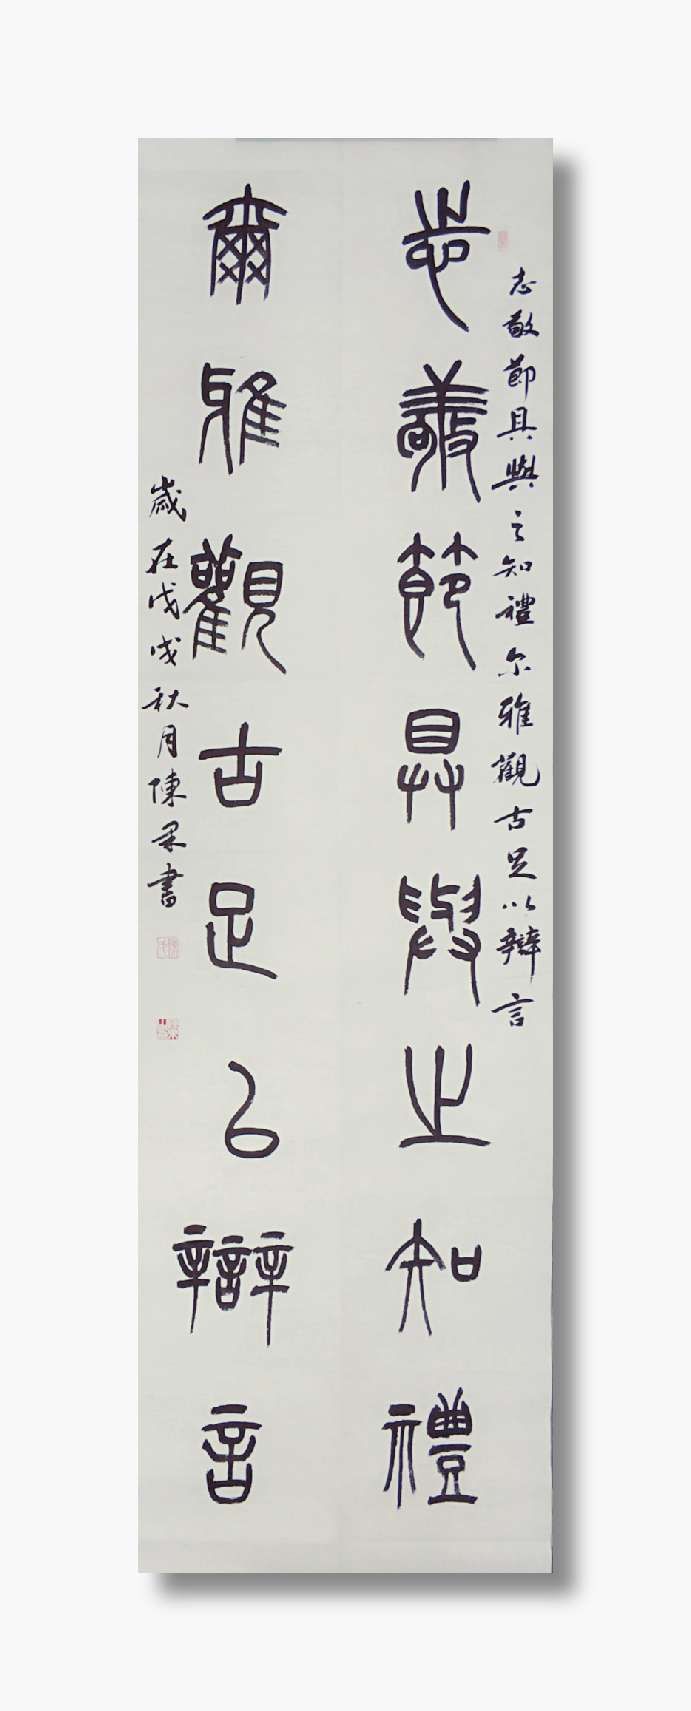 志敬節具與之知禮
志敬節具與之知禮尔雅觀古足以辯言
爾雅觀古足以辯言
歲在戊戌秋月陳
書